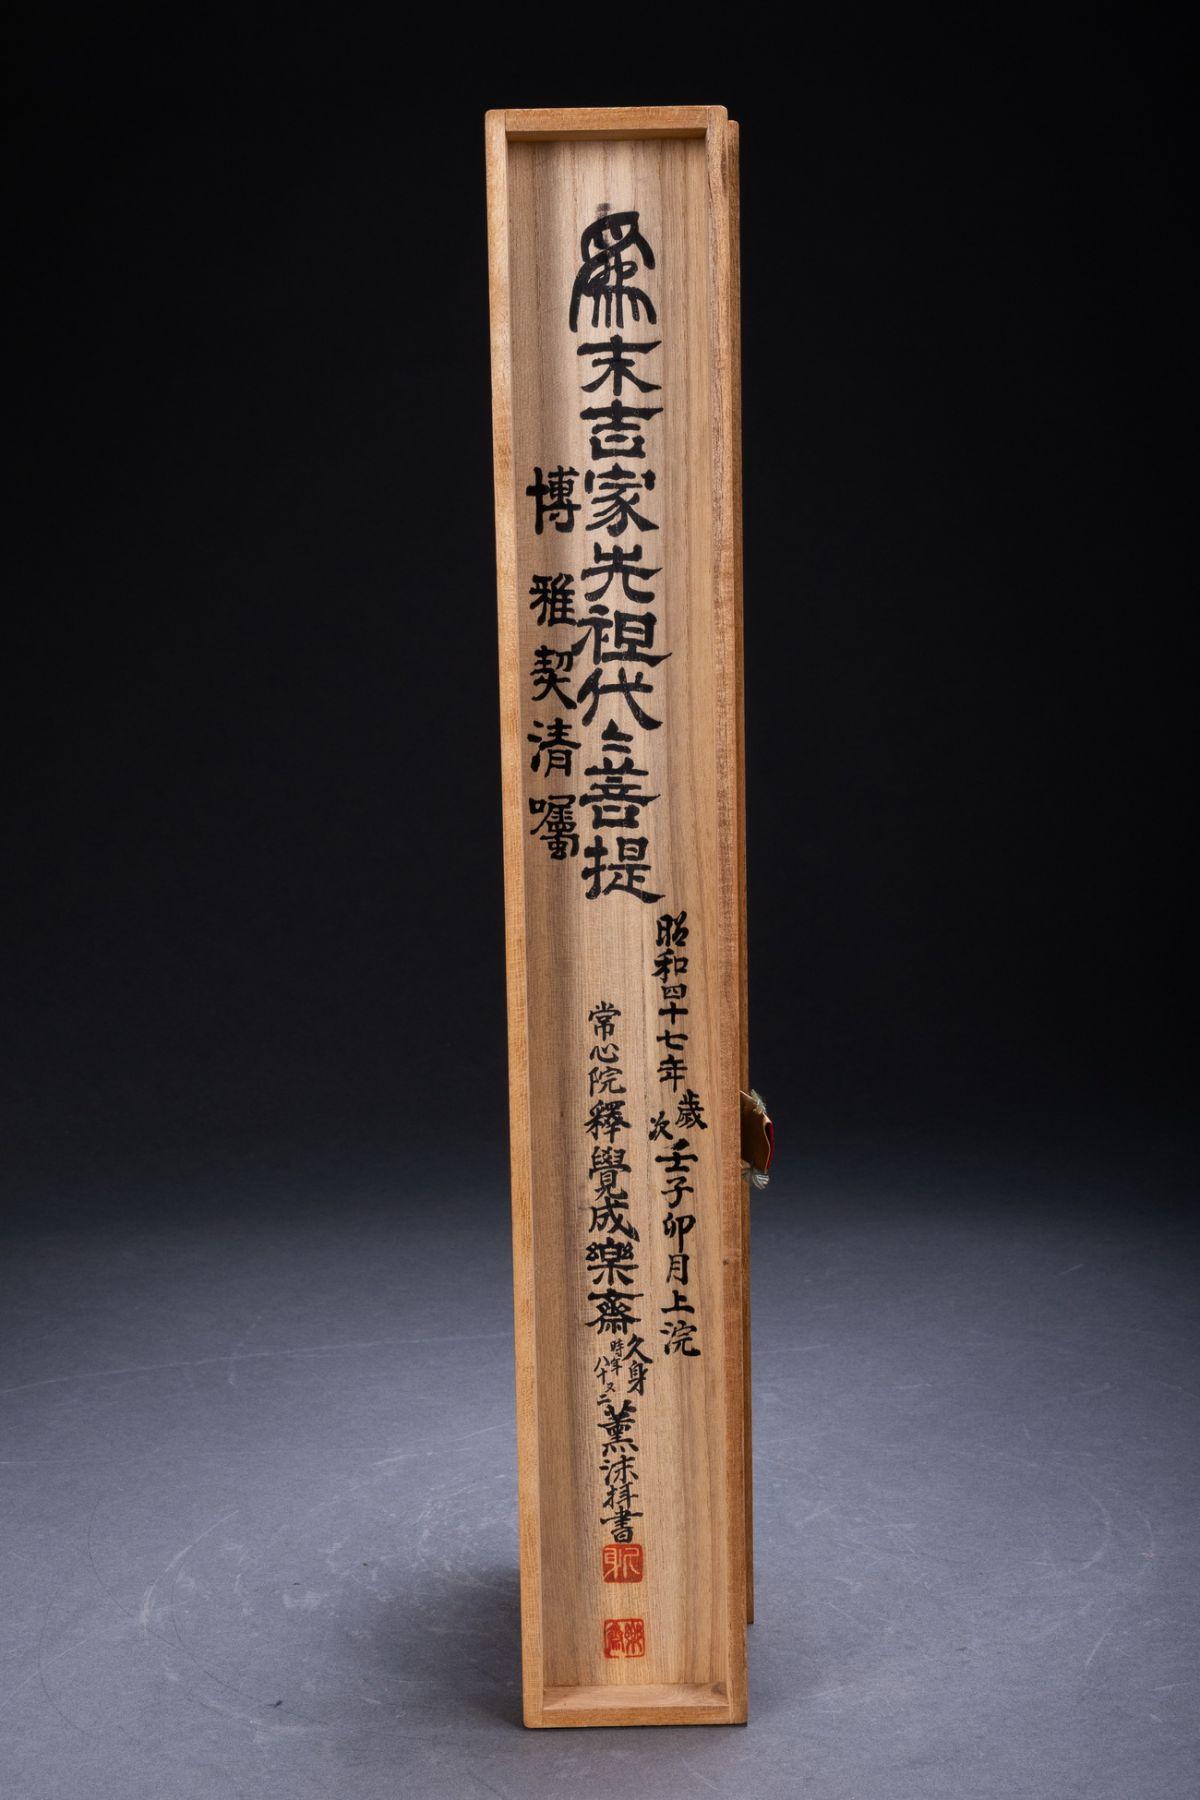 為末吉家先祖代々菩提
博雅契清囑
昭和四十七年歲次壬子卯月上浣
常心院釋覺成樂齋久身時年八十又二薰沫拝書